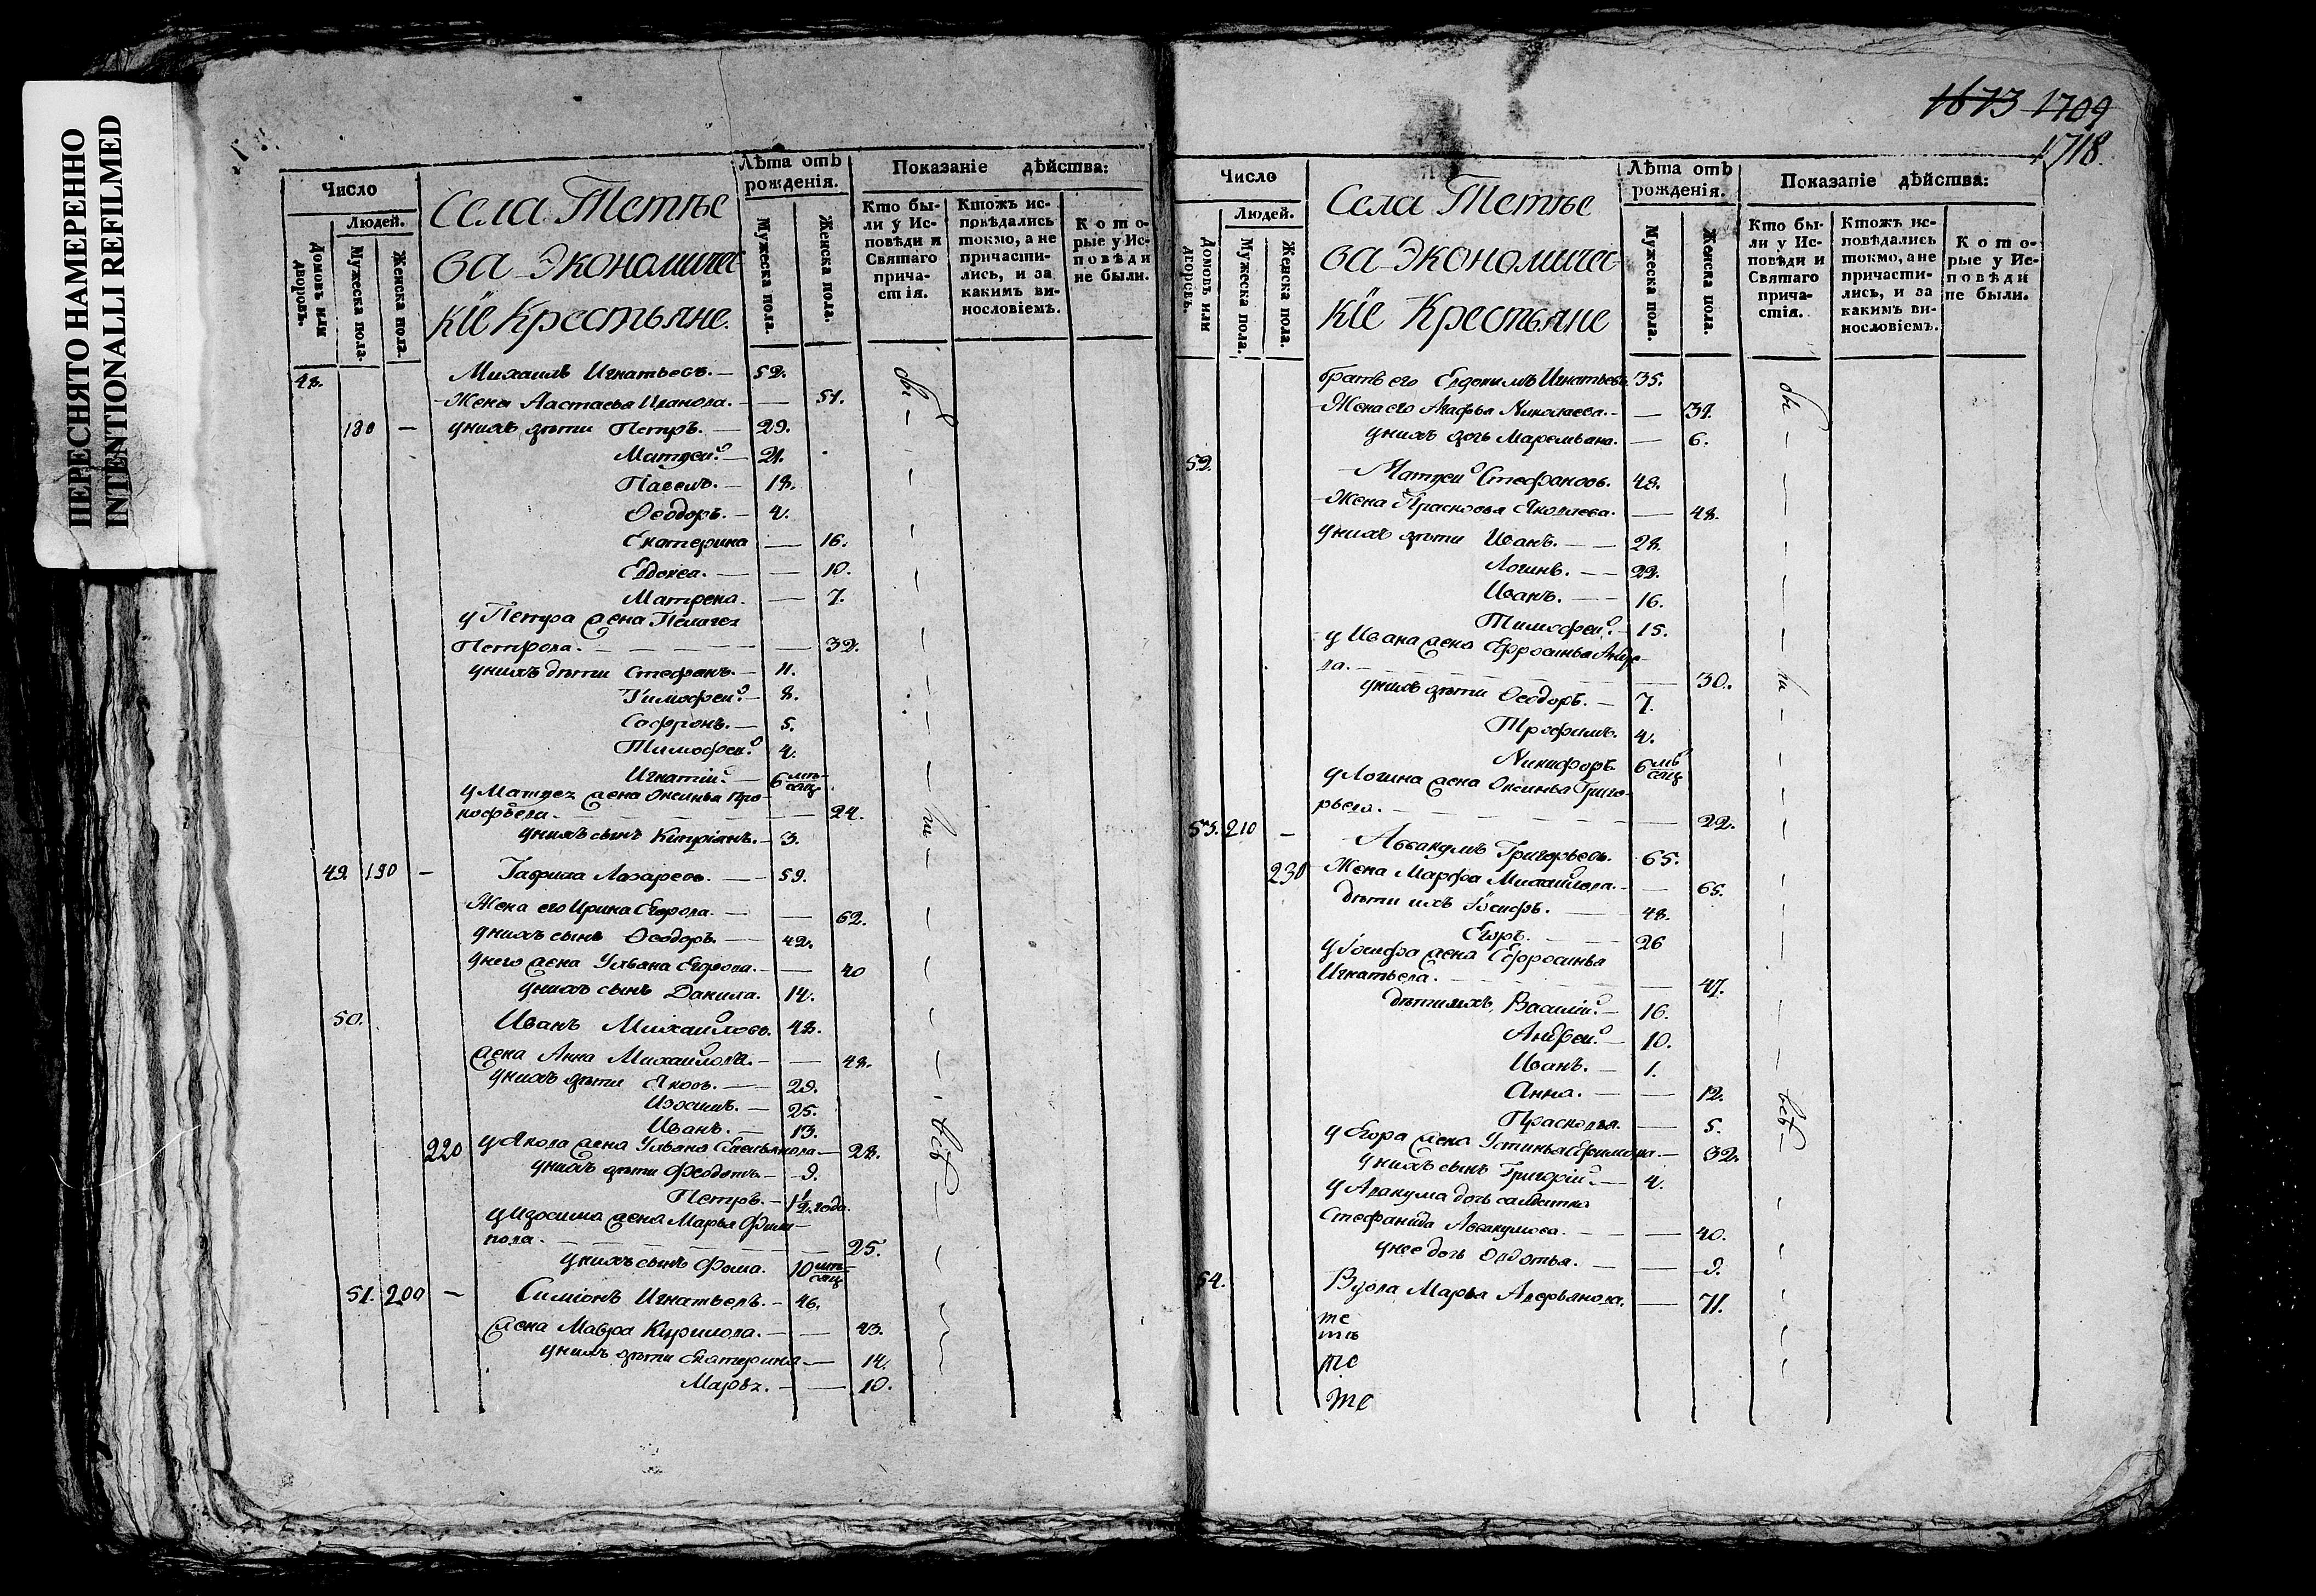 ПЕРЕСНЯТО НАМЕРЕННО
INTENTIONALLI REFILMED
Число
Людей.
Домовъ или дворовъ.
Мужеска пола.
Женска пола.
Села Тетне
ва Экономичес
кїе Крестьяне.
Лѣта отъ рожденія.
Мужеска пола.
Женска пола.
Показаніе дѣйства:
Кто бы-
ли у Ис-
повѣди и
Святаго
прича-
стія.
Ктожъ ис-
повѣдались
токмо, а не
причасти-
лись, и за
какимъ ви-
нословіемъ.
Кото-
рые у Ис-
повѣди
не были.
48. Михаилъ Игнатьевъ. — 52.
Жена Настасья Иванова. — 51.
180 — у нихъ дѣти Петръ. — 29.
Матвей. — 21.
Павелъ. — 18.
Ѳеодоръ. — 4.
Екатерина — 16.
Евдокеа. — 10.
Матрена. — 7.
у Петра жена Пелагея
Петрова. — 32.
у нихъ дѣти Стефанъ. — 11.
Тимофей. — 8.
Софронъ. — 5.
Тимофей. 4.
Игнатій. — 6 мѣсяц
у Матвея жена Оксинья Про-
кофьева. — 24.
у нихъ сынъ Кипріянъ. — 3.
49. 190 — Гаврила Лазаревъ. — 59.
Жена его Ирина Егорова. — 62.
у нихъ сынъ Ѳеодоръ. — 42.
у него жена Ульяна Егорова. — 40
у нихъ сынъ Данила. 14.
50. Иванъ Михайловъ. 48.
жена Анна Михайлова. — 48.
у нихъ дѣти Яковъ. — 29.
Изосимъ. — 25.
Иванъ. — 13.
220 у Якова жена Ульяна Емельянова — 28.
у нихъ дѣти Федотъ — 9.
Петръ. — 1½ года.
у Изосима жена Марья Фили-
пова. — 25.
у нихъ сынъ Фома. 10 мѣсяц
51. 200 — Симіонъ Игнатьевъ. — 46.
жена Мавра Кирилова. — 43.
у нихъ дѣти Екатерина — 14.
Марья. — 10.
бы
ли
всѣ
1673 1709
1718.
Число
Людей.
Домовъ или дворовъ.
Мужеска пола.
Женска пола.
Села Тетне
ва Экономичес
кїе Крестьяне
Лѣта отъ рожденія.
Мужеска пола.
Женска пола.
Показаніе дѣйства:
Кто бы-
ли у Ис-
повѣди и
Святаго
прича-
стія.
Ктожъ ис-
повѣдались
токмо, а не
причасти-
лись, и за
какимъ ви-
нословіемъ.
Кото-
рые у Ис-
повѣди
не были.
братъ его Евдокимъ Игнатьевъ. 35.
Жена его Агафья Николаева. — 37.
у нихъ дочь Маремьяна. — 6.
52. Матвей Стефановъ. 48.
Жена Прасковья Яковлева. — 48.
у нихъ дѣти Иванъ. — 28.
Логинъ. — 22.
Иванъ. — 16.
Тимофей. — 15.
у Ивана жена Ефросинья Андре-
ва. — 30.
у нихъ дѣти Ѳеодоръ. — 7.
Трофимъ. 4.
Никифоръ 6 мѣсяц
у Логина жена Оксинья Григо-
рьева. — 22.
53. 210 — Аввакумъ Григорьевъ. 65.
230 Жена Марфа Михайлова. — 65.
дѣти ихъ Іосифъ. — 48.
Егоръ. — 26
у Іосифа жена Ефросинья
Игнатьева. — 47.
дѣти ихъ Василій. — 16.
Андрей. — 10.
Иванъ. — 1.
Анна. — 12.
Прасковья. — 5.
у Егора жена Устинья Ефимова. — 32.
у нихъ сынъ Григорій. — 4.
у Авакума дочь салдатка
Стефанида Аввакумова. — 40.
у нее дочь Авдотья. — 9.
54. Вдова Марья Аверьянова. — 71.
те
тѣ
те
те
бы
ли
всѣ